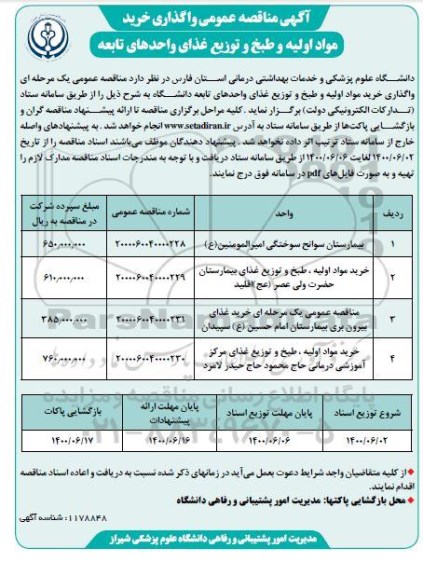 آگهی مناقصه عمومی واگذاری خرید
مواد اولیه و طبخ و توزیع غذای واحدهای تابعه
دانشگاه علوم پزشکی و خدمات بهداشتی درمانی استان فارس در نظر دارد مناقصه عمومی یک مرحله ای
واگذاری خرید مواد اولیه و طبخ و توزیع غذای واحدهای تابعه دانشگاه به شرح ذیل را از طریق سامانه ستاد
(تدارکات الکترونیکی دولت) برگزار نماید. کلیه مراحل برگزاری مناقصه تا ارائه پیشنهاد مناقصه گران و
بازگشایی پاکت‌ها از طریق سامانه ستاد به آدرس www.setadiran.ir انجام خواهد شد. به پیشنهادهای واصله
خارج از سامانه ستاد ترتیب اثر داده نخواهد شد. پیشنهاد دهندگان موظف می‌باشند اسناد مناقصه را از تاریخ
۱۴۰۰/۰۶/۰۲ لغایت ۱۴۰۰/۰۶/۰۶ از طریق سامانه ستاد دریافت و با توجه به مندرجات اسناد مناقصه مدارک لازم را
تهیه و به صورت فایل‌های pdf در سامانه فوق درج نمایند.
ردیف واحد شماره مناقصه عمومی مبلغ سپرده شرکت در مناقصه به ریال
۱ بیمارستان سوانح سوختگی امیرالمومنین(ع) ۲۰۰۰۰۶۰۰۴۰۰۰۰۲۲۸ ۶۵۰,۰۰۰,۰۰۰
۲ خرید مواد اولیه ، طبخ و توزیع غذای بیمارستان حضرت ولی عصر (عج) اقلید ۲۰۰۰۰۶۰۰۴۰۰۰۰۲۲۹ ۶۱۰,۰۰۰,۰۰۰
۳ مناقصه عمومی یک مرحله ای خرید غذای بیرون بری بیمارستان امام حسین (ع) سپیدان ۲۰۰۰۰۶۰۰۴۰۰۰۰۲۳۱ ۳۸۵,۰۰۰,۰۰۰
۴ خرید مواد اولیه ، طبخ و توزیع غذای مرکز آموزشی درمانی حاج محمود حاج حیدر لامرد ۲۰۰۰۰۶۰۰۴۰۰۰۰۲۳۰ ۷۶۰,۰۰۰,۰۰۰
شروع توزیع اسناد پایان مهلت توزیع اسناد پایان مهلت ارائه پیشنهادات بازگشایی پاکات
۱۴۰۰/۰۶/۰۲ ۱۴۰۰/۰۶/۰۶ ۱۴۰۰/۰۶/۱۶ ۱۴۰۰/۰۶/۱۷
از کلیه متقاضیان واجد شرایط دعوت بعمل می‌آید در زمانهای ذکر شده نسبت به دریافت و اعاده اسناد مناقصه
اقدام نمایند.
محل بازگشایی پاکتها: مدیریت امور پشتیبانی و رفاهی دانشگاه
شناسه آگهی: ۱۱۷۸۸۴۸
مدیریت امور پشتیبانی و رفاهی دانشگاه علوم پزشکی شیراز